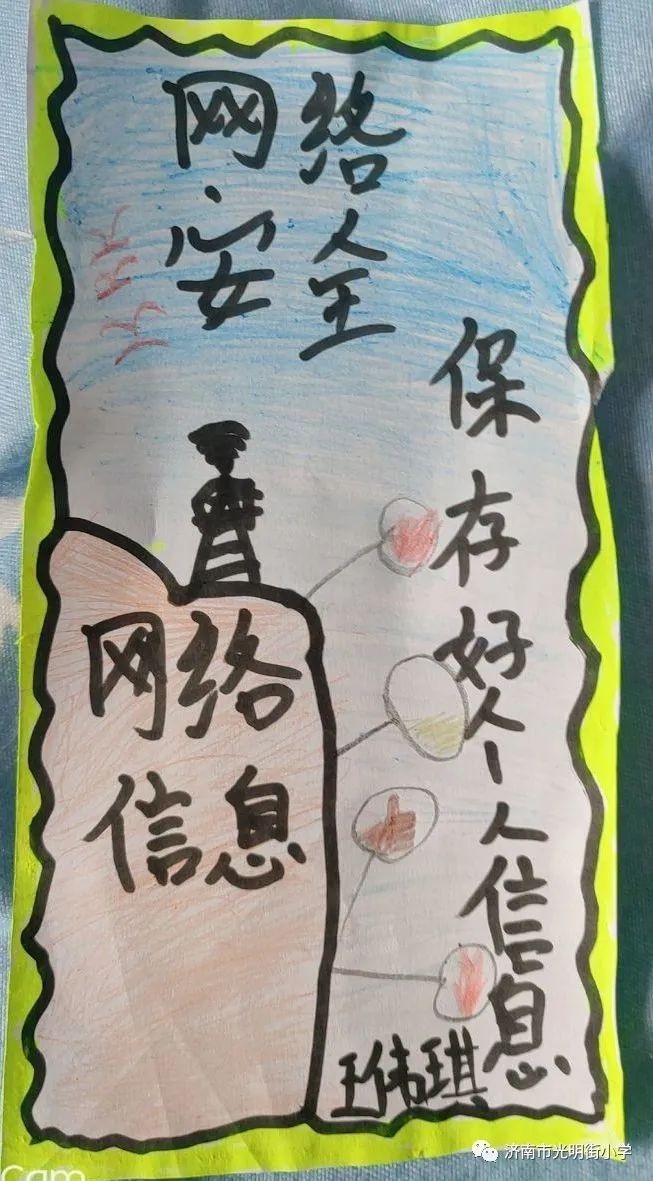 网络
安全
保存好个人信息
网络
信息
王伟琪
济南市光明街小学
Cam